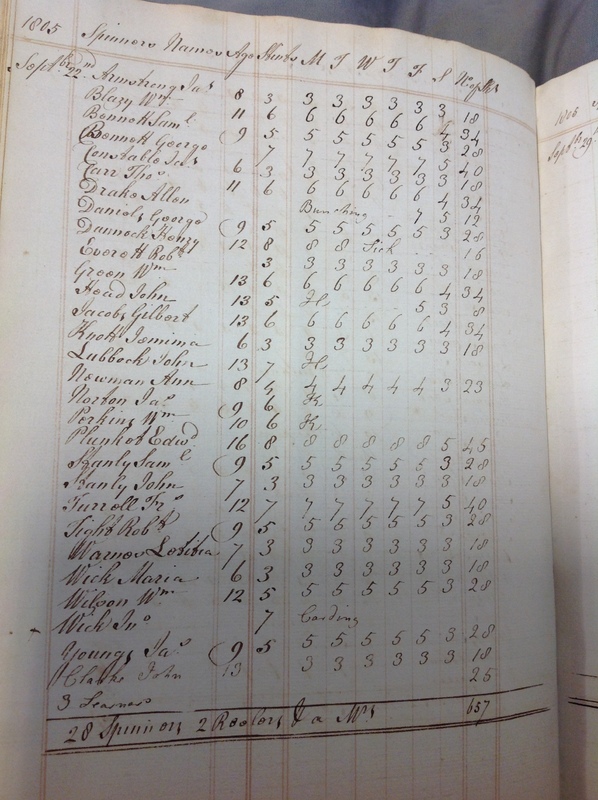 1805 Spinners Names Age Hurbs M T W T F S No of Sks
Septbr 22nd Armstrong Jas 8 3 3 3 3 3 3 3 18
Blazy Wm 11 6 6 6 6 6 6 4 34
Bennett Saml 9 5 5 5 5 5 5 3 28
Bennett George 7 7 7 7 7 7 5 40
Constable Jas 6 3 3 3 3 3 3 3 18
Carr Thos 11 6 6 6 6 6 6 4 34
Drake Allen Bunching 7 5 12
Daniels George 9 5 5 5 5 5 5 3 28
Dannock Henry 12 8 8 8 Sick 16
Everett Robt 3 3 3 3 3 3 3 18
Green Wm 13 6 6 6 6 6 6 4 34
Head John 13 5 H 5 3 8
Jacobs Gilbert 13 6 6 6 6 6 6 4 34
Knot Jemima 6 3 3 3 3 3 3 3 18
Lubbock John 13 7 H
Newman Ann 8 4 4 4 4 4 4 3 23
Norton Jas 9 6 H
Perkins Wm 10 6 H
Plunket Edwd 16 8 8 8 8 8 8 5 45
Stanly Saml 9 5 5 5 5 5 5 3 28
Stanly John 7 3 3 3 3 3 3 3 18
Turrell Frs 12 7 7 7 7 7 7 5 40
Tight Robt 9 5 5 5 5 5 5 3 28
Warnes Letitia 7 3 3 3 3 3 3 3 18
Wick Maria 6 3 3 3 3 3 3 3 18
Wilson Wm 12 5 5 5 5 5 5 3 28
Wick Jno 7 Carding
Youngs Jas 9 5 5 5 5 5 5 3 28
Clarke John 13 3 3 3 3 3 3 18
3 Learners 25
28 Spinners 2 Reelers & a Mrs 657
1805
Septbr 29